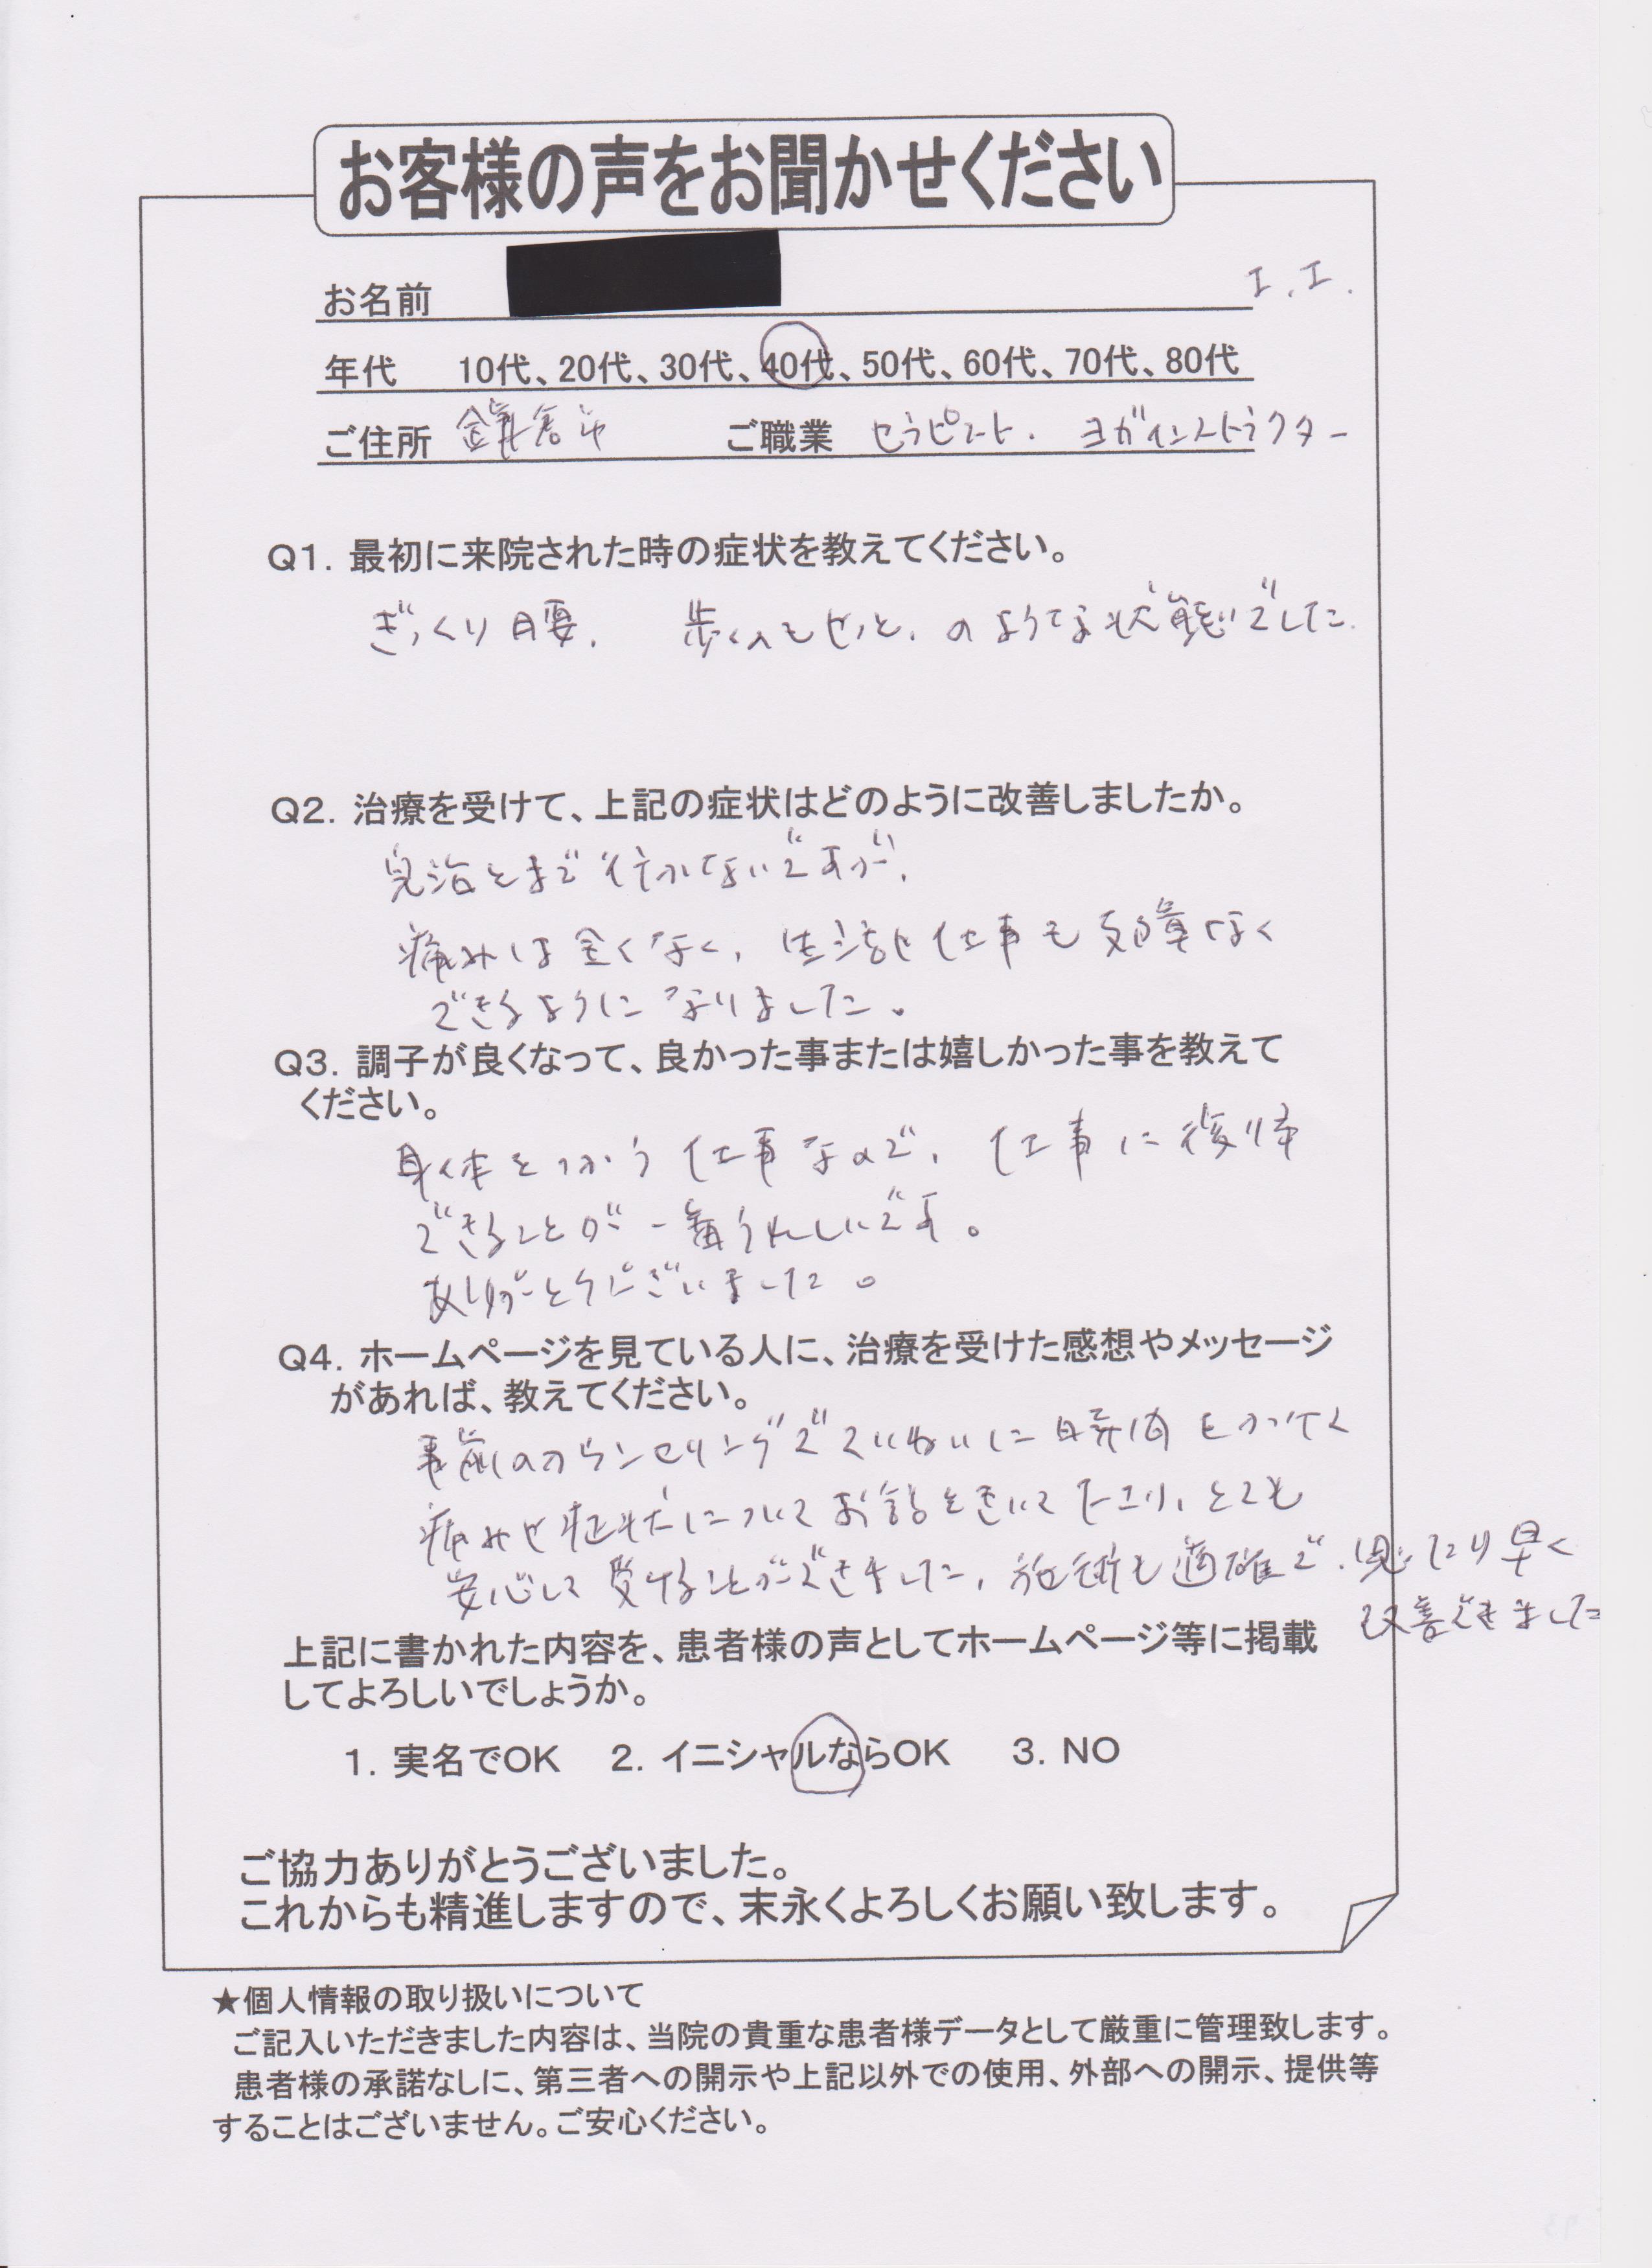 お客様の声をお聞かせください
お名前 I.I.
年代 10代、20代、30代、40代、50代、60代、70代、80代
ご住所 鎌倉市 ご職業 セラピスト. ヨガインストラクター
Q1. 最初に来院された時の症状を教えてください。
ぎっくり腰. 歩くのもやっと、のような状態でした.
Q2. 治療を受けて、上記の症状はどのように改善しましたか。
完治とまで行かないですが、
痛みは全くなく、生活や仕事も支障なく
できるようになりました。
Q3. 調子が良くなって、良かった事または嬉しかった事を教えて
ください。
身体をつかう仕事なので、仕事に復帰
できることが一番うれしいです。
ありがとうございました。
Q4. ホームページを見ている人に、治療を受けた感想やメッセージ
があれば、教えてください。
事前のカウンセリングでていねいに時間をかけて
痛みや症状についてお話をきいて下さり、とても
安心して受けることができました、施術も適確で、思ったより早く
改善できました
上記に書かれた内容を、患者様の声としてホームページ等に掲載
してよろしいでしょうか。
1. 実名でOK 2. イニシャルならOK 3. NO
ご協力ありがとうございました。
これからも精進しますので、末永くよろしくお願い致します。
★個人情報の取り扱いについて
ご記入いただきました内容は、当院の貴重な患者様データとして厳重に管理致します。
患者様の承諾なしに、第三者への開示や上記以外での使用、外部への開示、提供等
することはございません。ご安心ください。